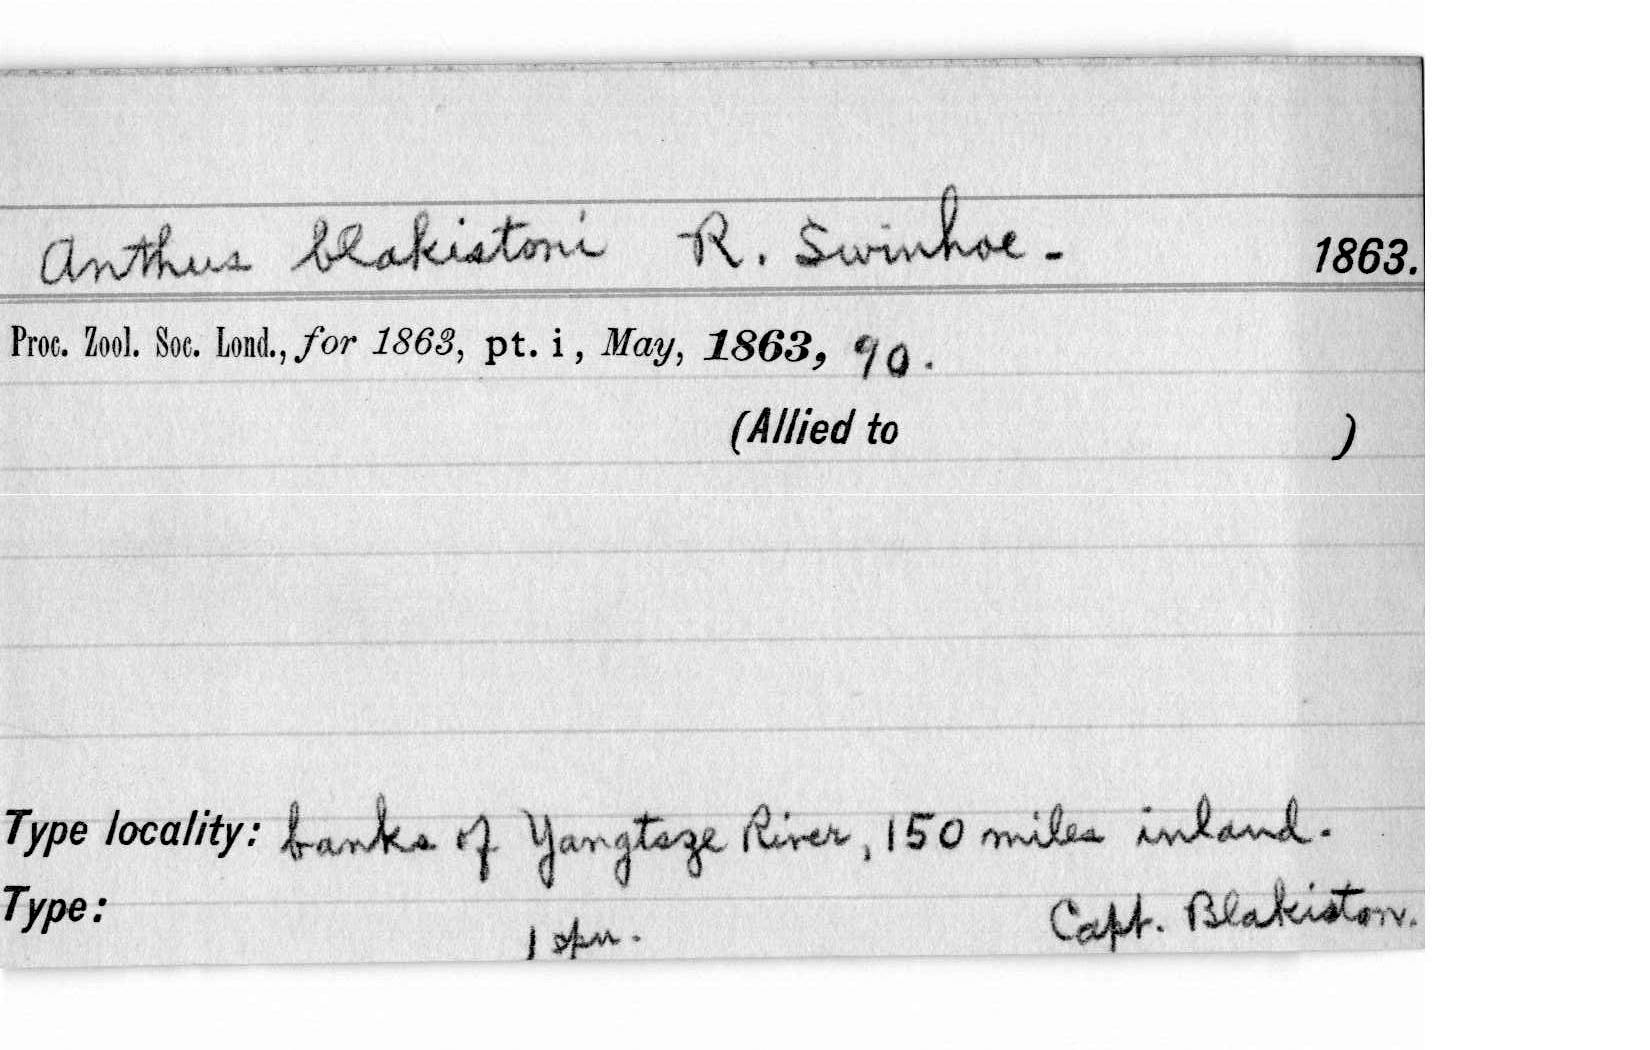 Anthus blakistoni R. Swinhoe - 1863.
Proc. Zool. Soc. Lond., for 1863, pt. i, May, 1863, 90.
(Allied to )
Type locality: banks of Yangtsze River, 150 miles inland.
Type: 1 spn. Capt. Blakiston.